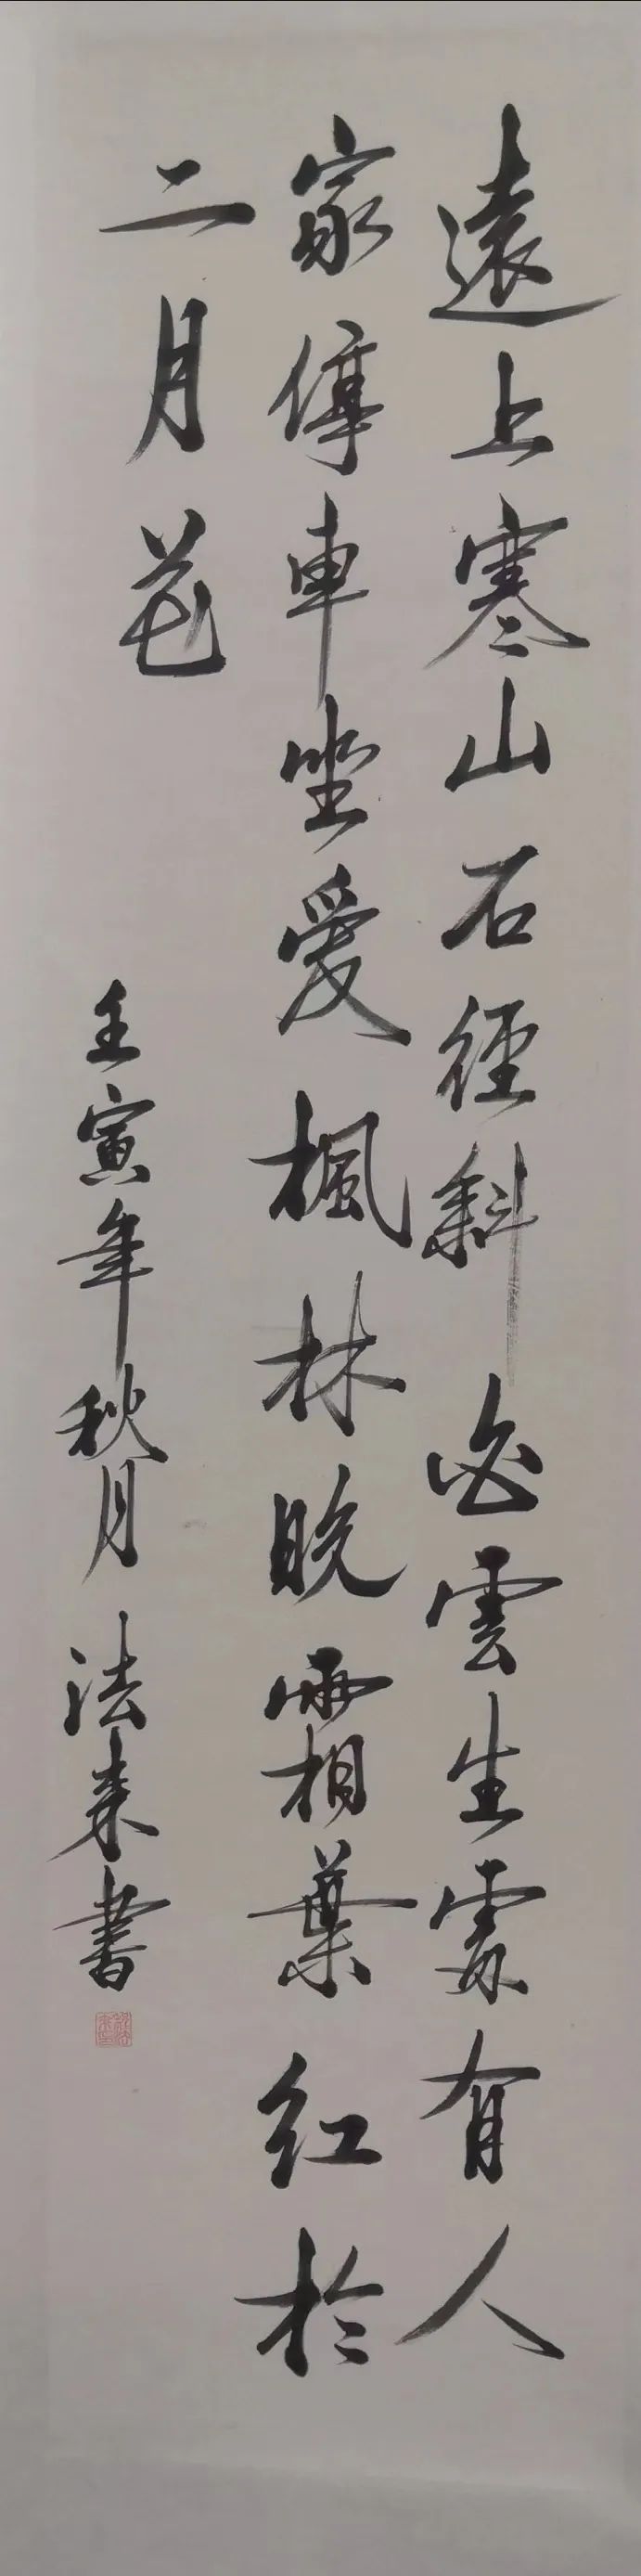 遠上寒山石徑斜白雲生處有人
家停車坐愛楓林晚霜葉红於
二月花
壬寅年秋月法来書